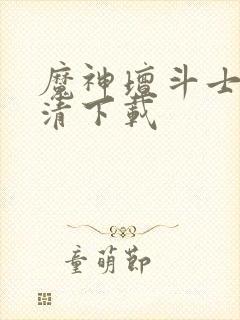 魔神壇斗士
清下載
童萌節